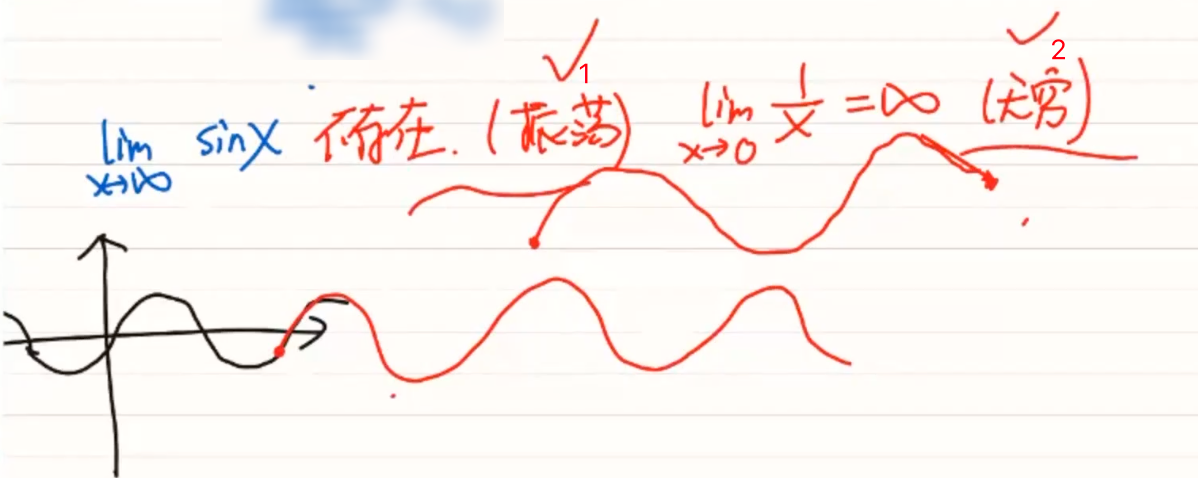 ✓1 ✓2
lim x→∞ sinx 不存在.（振荡） lim x→0 1/x = ∞（无穷）